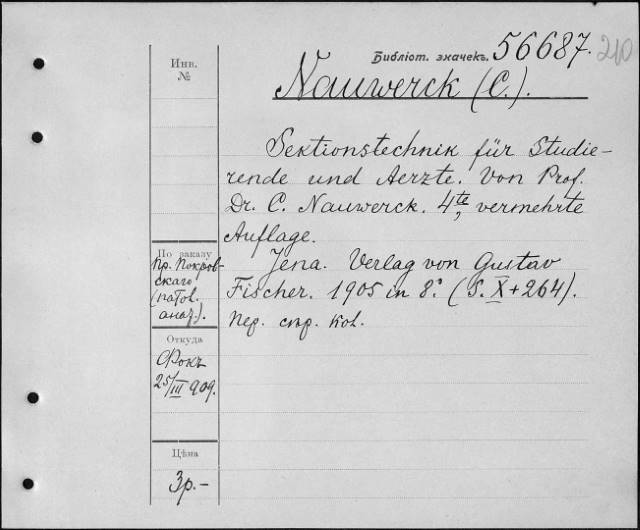 Библіот. значекъ. 56687. 210
Инв.
№
Nauwerck (C.).
Sektionstechnik für Studie-
rende und Aerzte. Von Prof.
Dr. C. Nauwerck. 4te, vermehrte
Auflage.
Jena. Verlag von Gustav
Fischer. 1905 in 8º. (S. X+264).
Пер. скр. кол.
По заказу
Пр. Покров-
скаго
(патол.
анат.).
Откуда
Фокъ
25/III 909.
Цѣна
3р.-